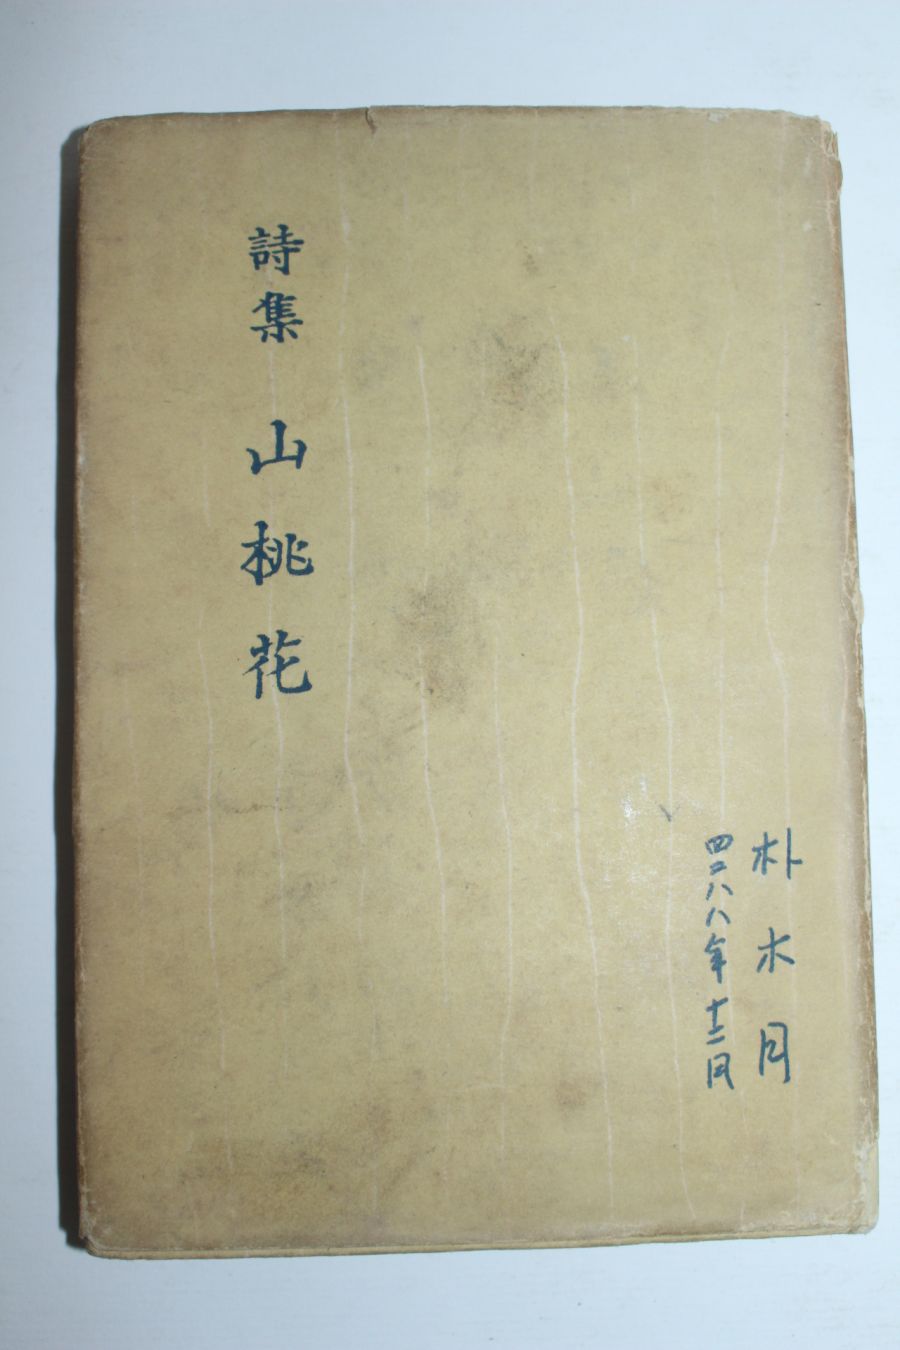 朴木月
四二八八年十二月
詩集 山桃花